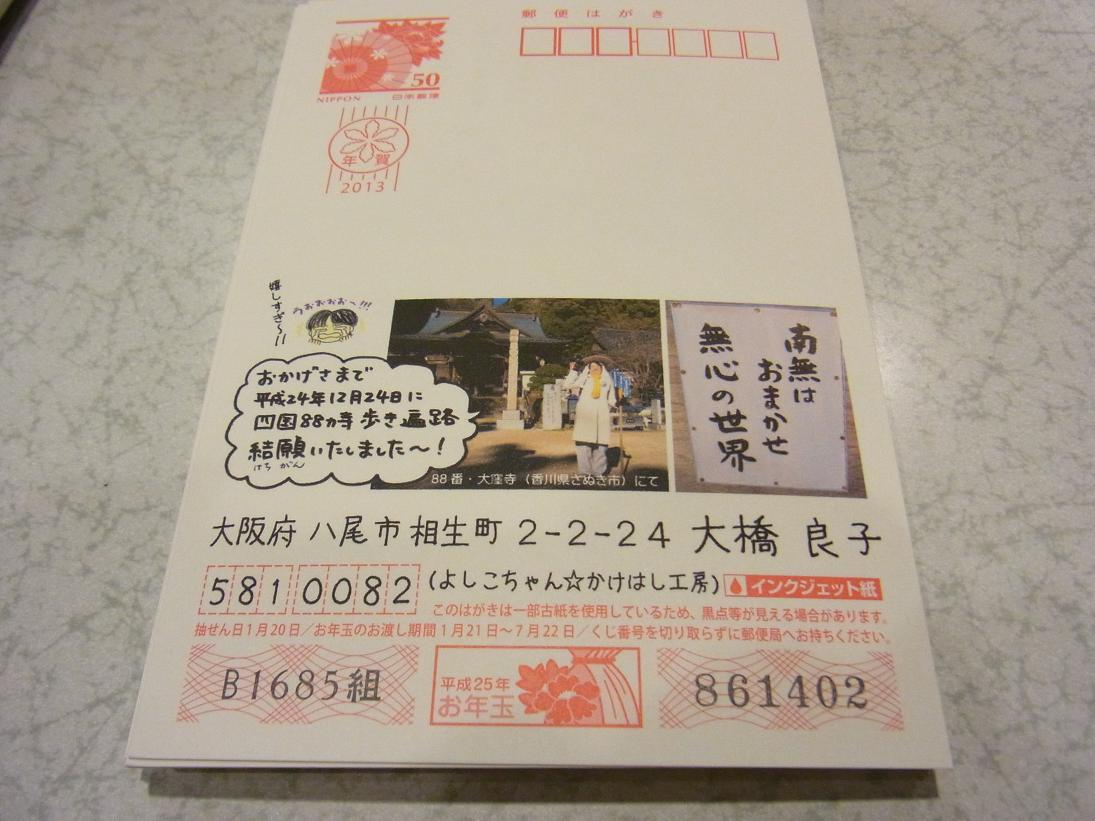 郵便はがき
50
NIPPON 日本郵便
年賀
2013
嬉しすぎ〜!!
うおおおお〜!!!
おかげさまで
平成24年12月24日に
四国88ヵ寺 歩き遍路
結願いたしました〜!
けち がん
88番・大窪寺(香川県さぬき市)にて
南無は
おまかせ
無心の世界
大阪府 八尾市 相生町 2-2-24 大橋 良子
5810082 (よしこちゃん☆かけはし工房) インクジェット紙
このはがきは一部古紙を使用しているため、黒点等が見える場合があります。
抽せん日1月20日/お年玉のお渡し期間1月21日〜7月22日/くじ番号を切り取らずに郵便局へお持ちください。
B1685組
平成25年
お年玉
861402